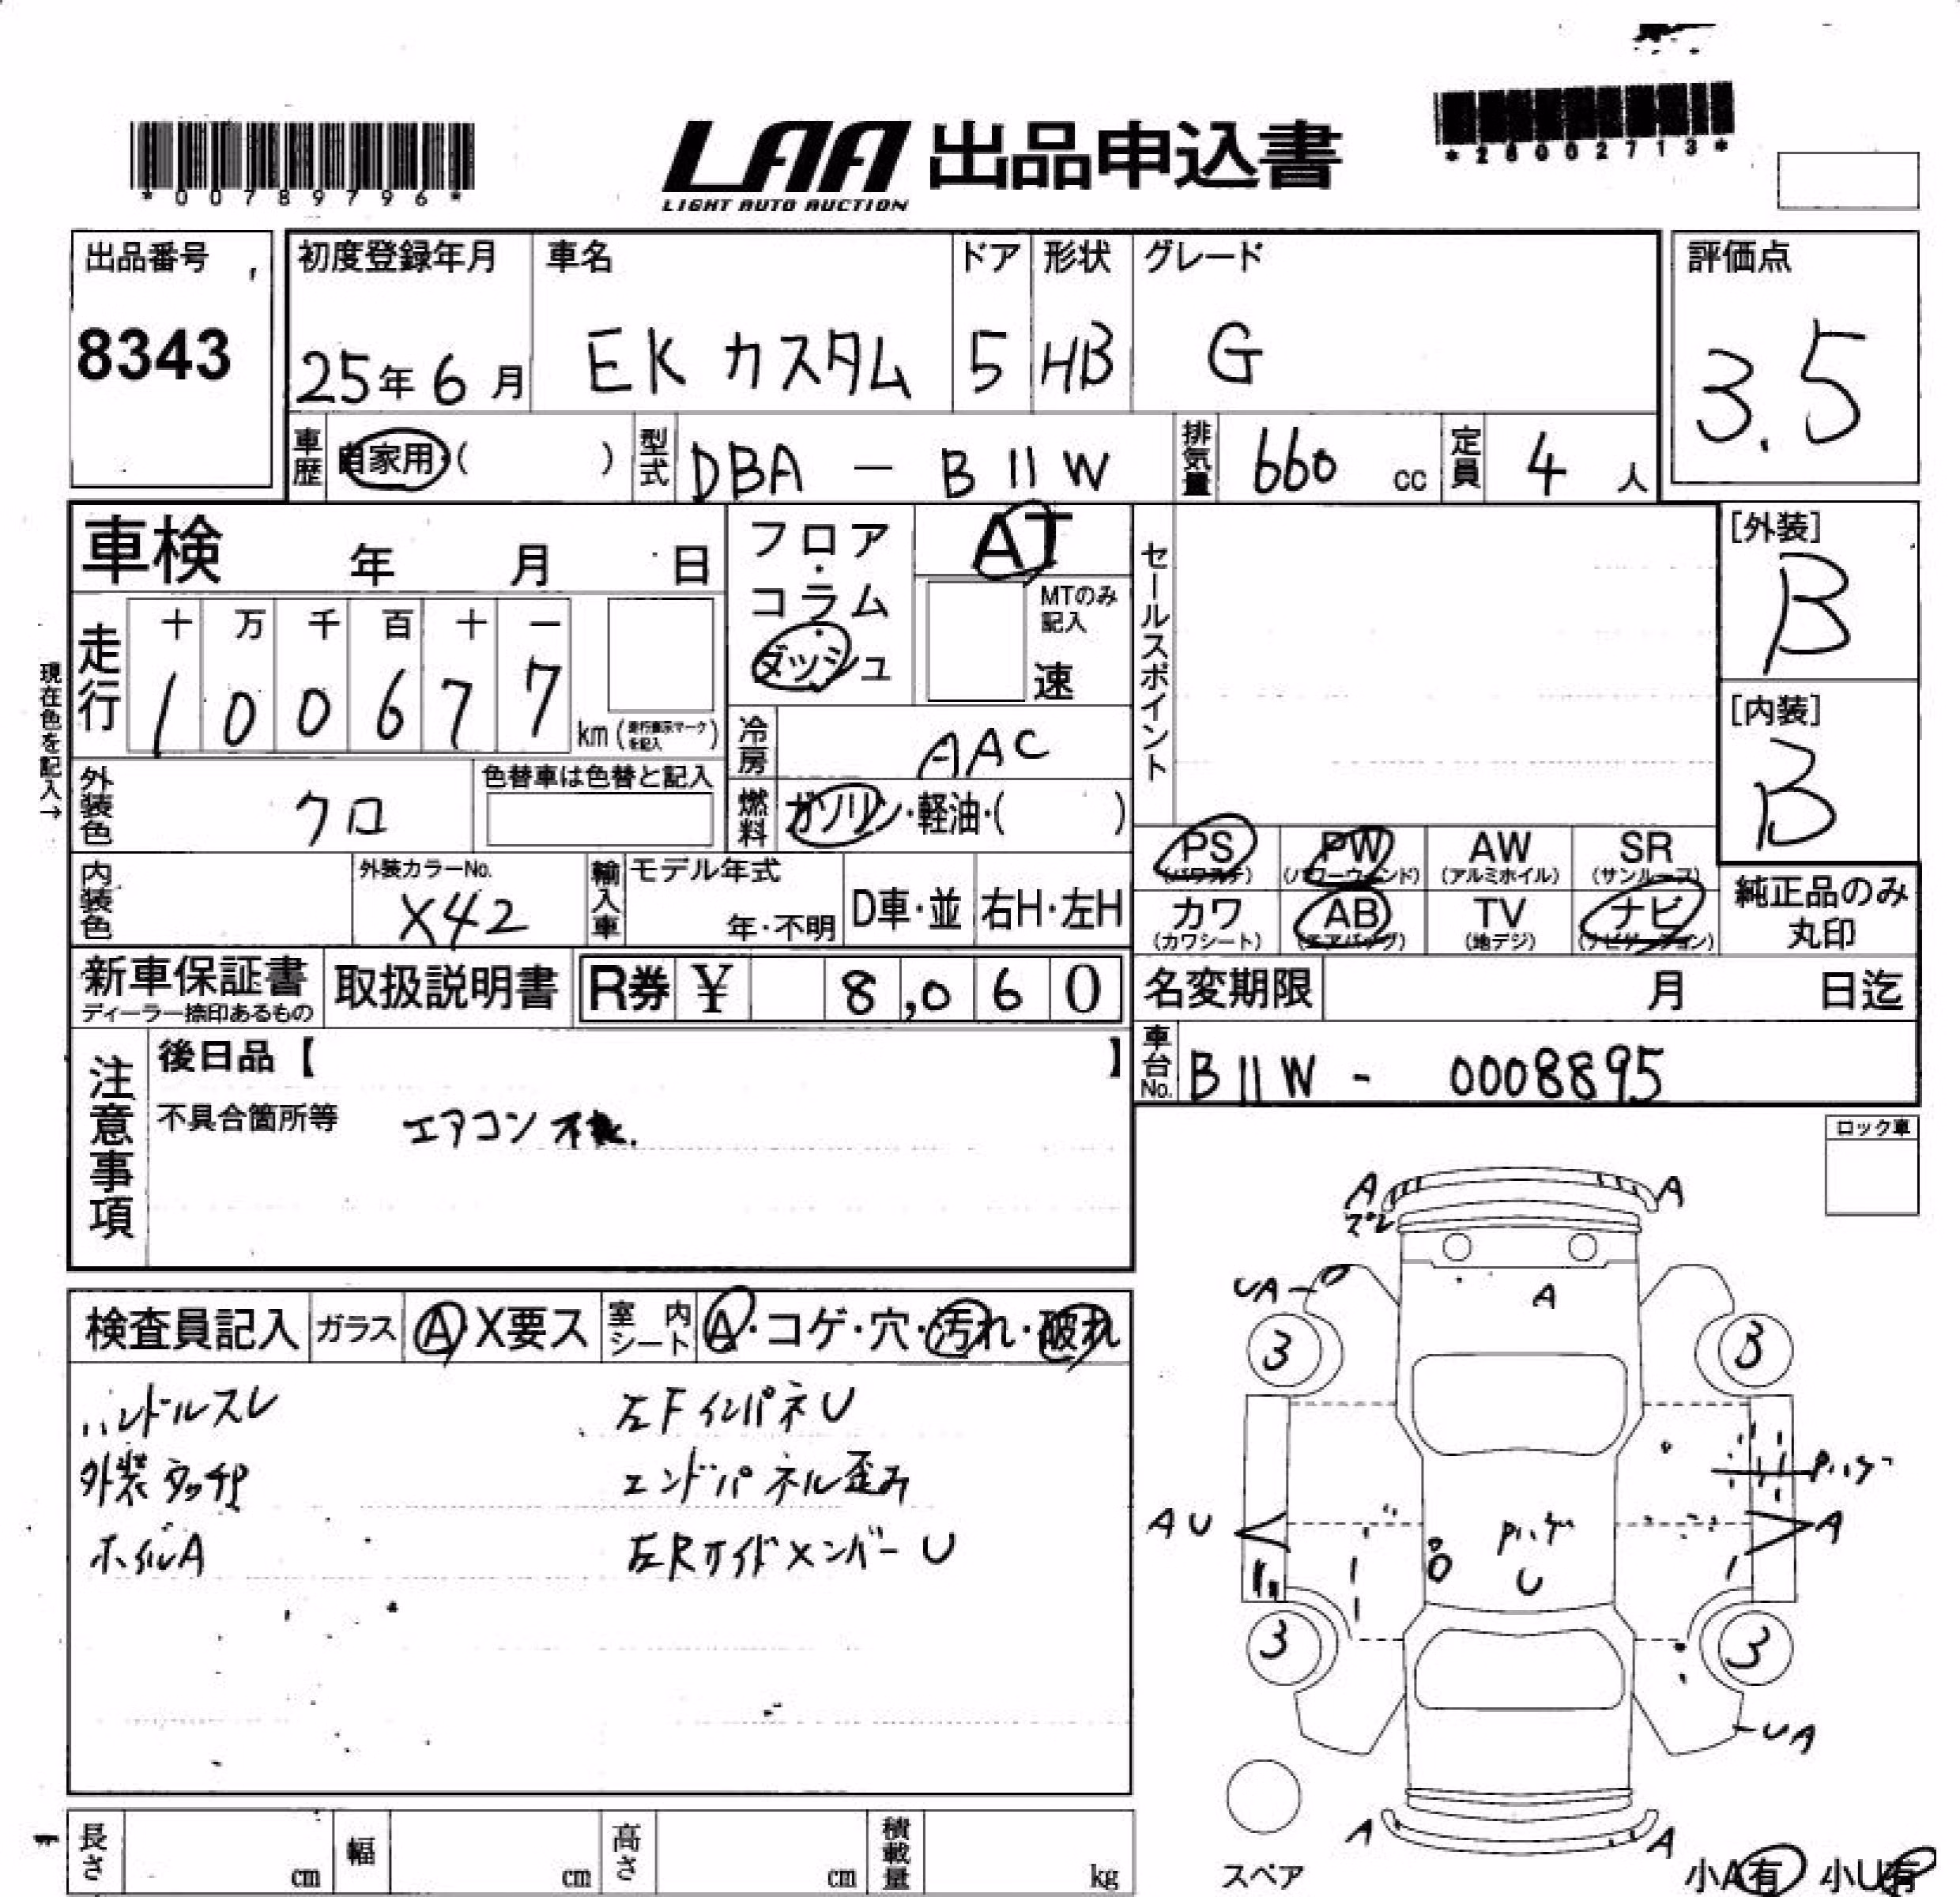 *00789796*
LAA 出品申込書
LIGHT AUTO AUCTION
*26002713*
出品番号
8343
初度登録年月
25年6月
車名
EK カスタム
ドア
5
形状
HB
グレード
G
評価点
3.5
車歴 自家用・( )
型式 DBA - B11W
排気量 660 cc
定員 4 人
車検 年 月 日
フロア・コラム・ダッシュ
AT
MTのみ記入
速
セールスポイント
[外装]
B
[内装]
B
現在色を記入→
走行
十 万 千 百 十 一
1 0 0 6 7 7 km (走行表示マークを記入)
冷房 AAC
外装色 クロ
色替車は色替と記入
燃料 ガソリン・軽油・( )
内装色
外装カラーNo.
X42
輸入車
モデル年式
年・不明
D車・並
右H・左H
PS (パワステ)
PW (パワーウィンド)
AW (アルミホイル)
SR (サンルーフ)
カワ (カワシート)
AB (エアバッグ)
TV (地デジ)
ナビ (ナビゲーション)
純正品のみ丸印
新車保証書
ディーラー捺印あるもの
取扱説明書
R券 ¥ 8,060
名変期限 月 日迄
車台No. B11W - 0008895
注意事項
後日品【 】
不具合箇所等 エアコン不良.
ロック車
検査員記入
ガラス A・X要ス
室内シート A・コゲ・穴・汚れ・破れ
ハンドルスレ
左Fインパネ U
外装タッチP
エンドパネル歪み
ホイルA
左Rサイドメンバー U
A
ズレ
A
UA
A
3
3
AU
A
U
3
3
UA
A
A
スペア
小A有 小U有
長さ cm
幅 cm
高さ cm
積載量 kg